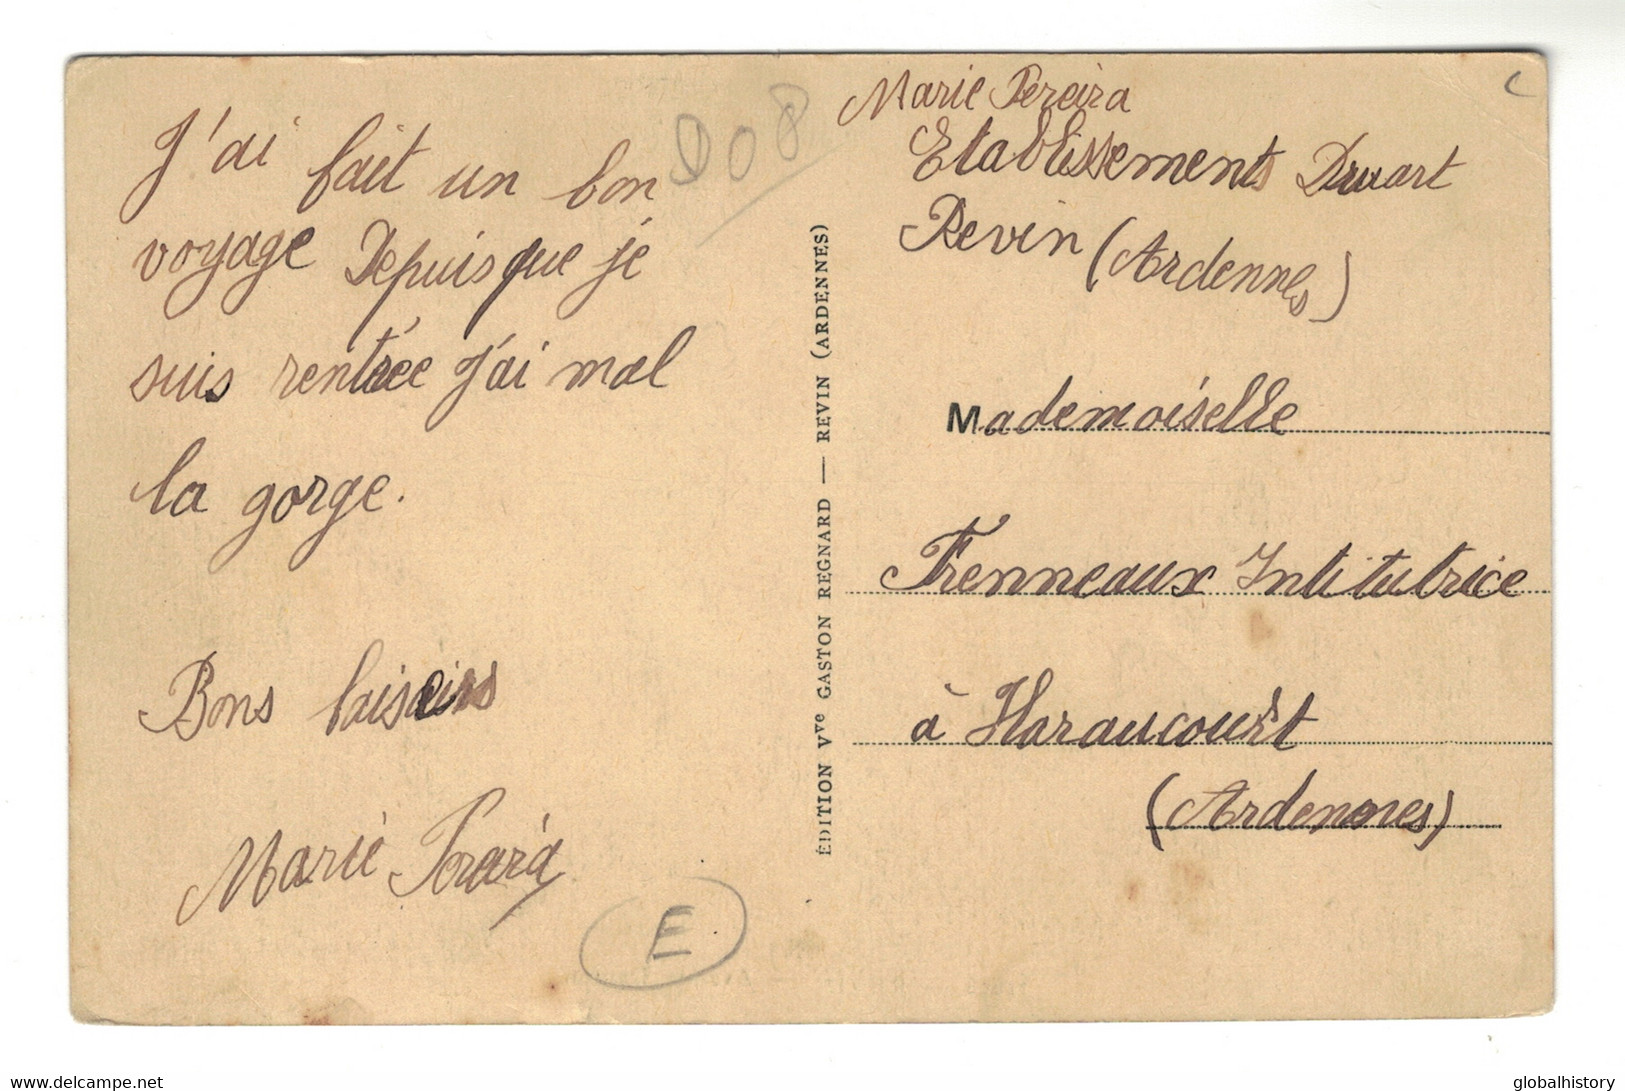 J'ai fait un bon
voyage Depuis que je
suis rentrée j'ai mal
la gorge.
Bons baisers
Marie
908
E
ÉDITION Vve GASTON REGNARD — REVIN (ARDENNES)
c
Marie Pereira
Etablissements Druart
Revin (Ardennes)
Mademoiselle
Frenneaux Intitutrice
à Haraucourt
(Ardennes)
delcampe.net
globalhistory